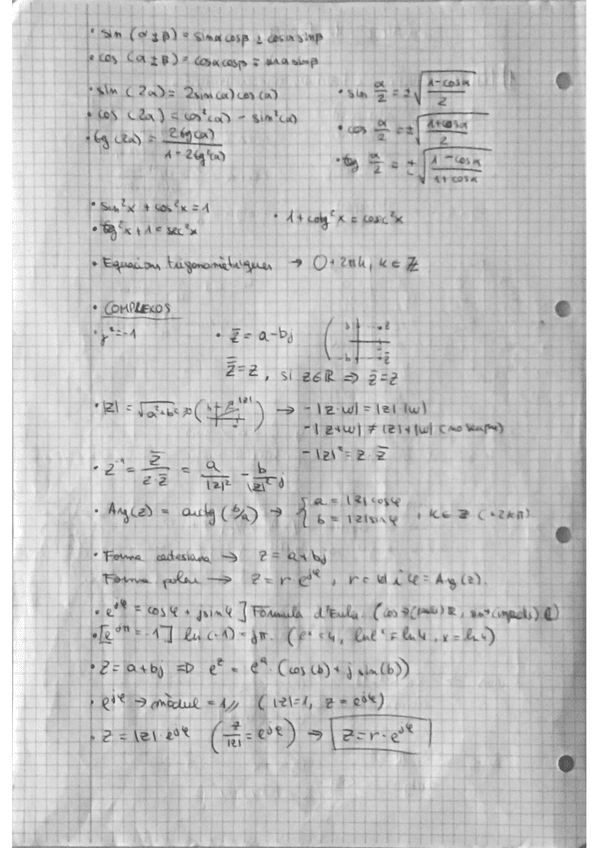 • sin (α ± β) = sinα cosβ ± cosα sinβ
• cos (α ± β) = cosα cosβ ∓ sinα sinβ
• sin (2α) = 2 sin(α) cos(α)
• sin α/2 = ± √((1 - cosα)/2)
• cos (2α) = cos²(α) - sin²(α)
• cos α/2 = ± √((1 + cosα)/2)
• tg (2α) = 2tg(α) / (1 - 2tg²(α))
• tg α/2 = ± √((1 - cosα)/(1 + cosα))
• sin²x + cos²x = 1
• 1 + cotg²x = cosec²x
• tg²x + 1 = sec²x
• Equacions trigonomètriques → 0 + 2πk, k ∈ ℤ
• COMPLEXOS
• j² = -1
• z̄ = a - bj
z̿ = z, si z ∈ ℝ ⇒ z̄ = z
• |z| = √(a² + b²) → - |z·w| = |z|·|w|
- |z+w| ≠ |z| + |w| (no sempre)
- |z|² = z · z̄
• z⁻¹ = z̄ / (z·z̄) = a/|z|² - b/|z|² j
• Arg(z) = arctg (b/a) → { a = |z| cosφ
b = |z| sinφ , k ∈ ℤ (+2kπ)
• Forma cartesiana → z = a + bj
Forma polar → z = r e^jφ, r = |z| i φ = Arg(z).
• e^jφ = cosφ + j sinφ ] Fórmula d'Euler.
• [e^jπ = -1] ln(-1) = jπ. (eˣ = 4, ln eˣ = ln 4, x = ln 4)
• z = a + bj ⇒ e^z = e^a · (cos(b) + j sin(b))
• e^jφ → mòdul = 1 // (|z| = 1, z = e^jφ)
• z = |z| · e^jφ (z/|z| = e^jφ) → z = r · e^jφ